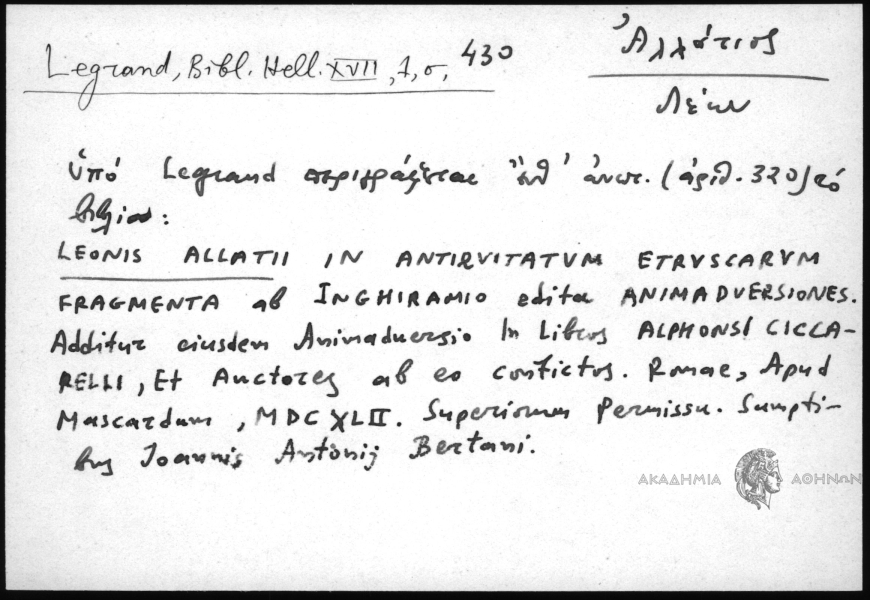 Legrand, Bibl. Hell. XVII, 1, σ, 430
Ἀλλάτιος
Λέων
ὑπό Legrand περιγράφεται ἀνωτ. (ἀριθ. 320) τό
βιβλίον:
LEONIS ALLATII IN ANTIQVITATVM ETRVSCARVM
FRAGMENTA ab INGHIRAMIO edita ANIMADVERSIONES.
Additur eiusdem Animaduersio In Libros ALPHONSI CICCA-
RELLI, Et Auctores ab eo confictos. Romae, Apud
Mascardum, MDCXLII. Superiorum Permissu. Sumpti-
bus Ioannis Antonij Bertani.
ΑΚΑΔΗΜΙΑ ΑΘΗΝΩΝ